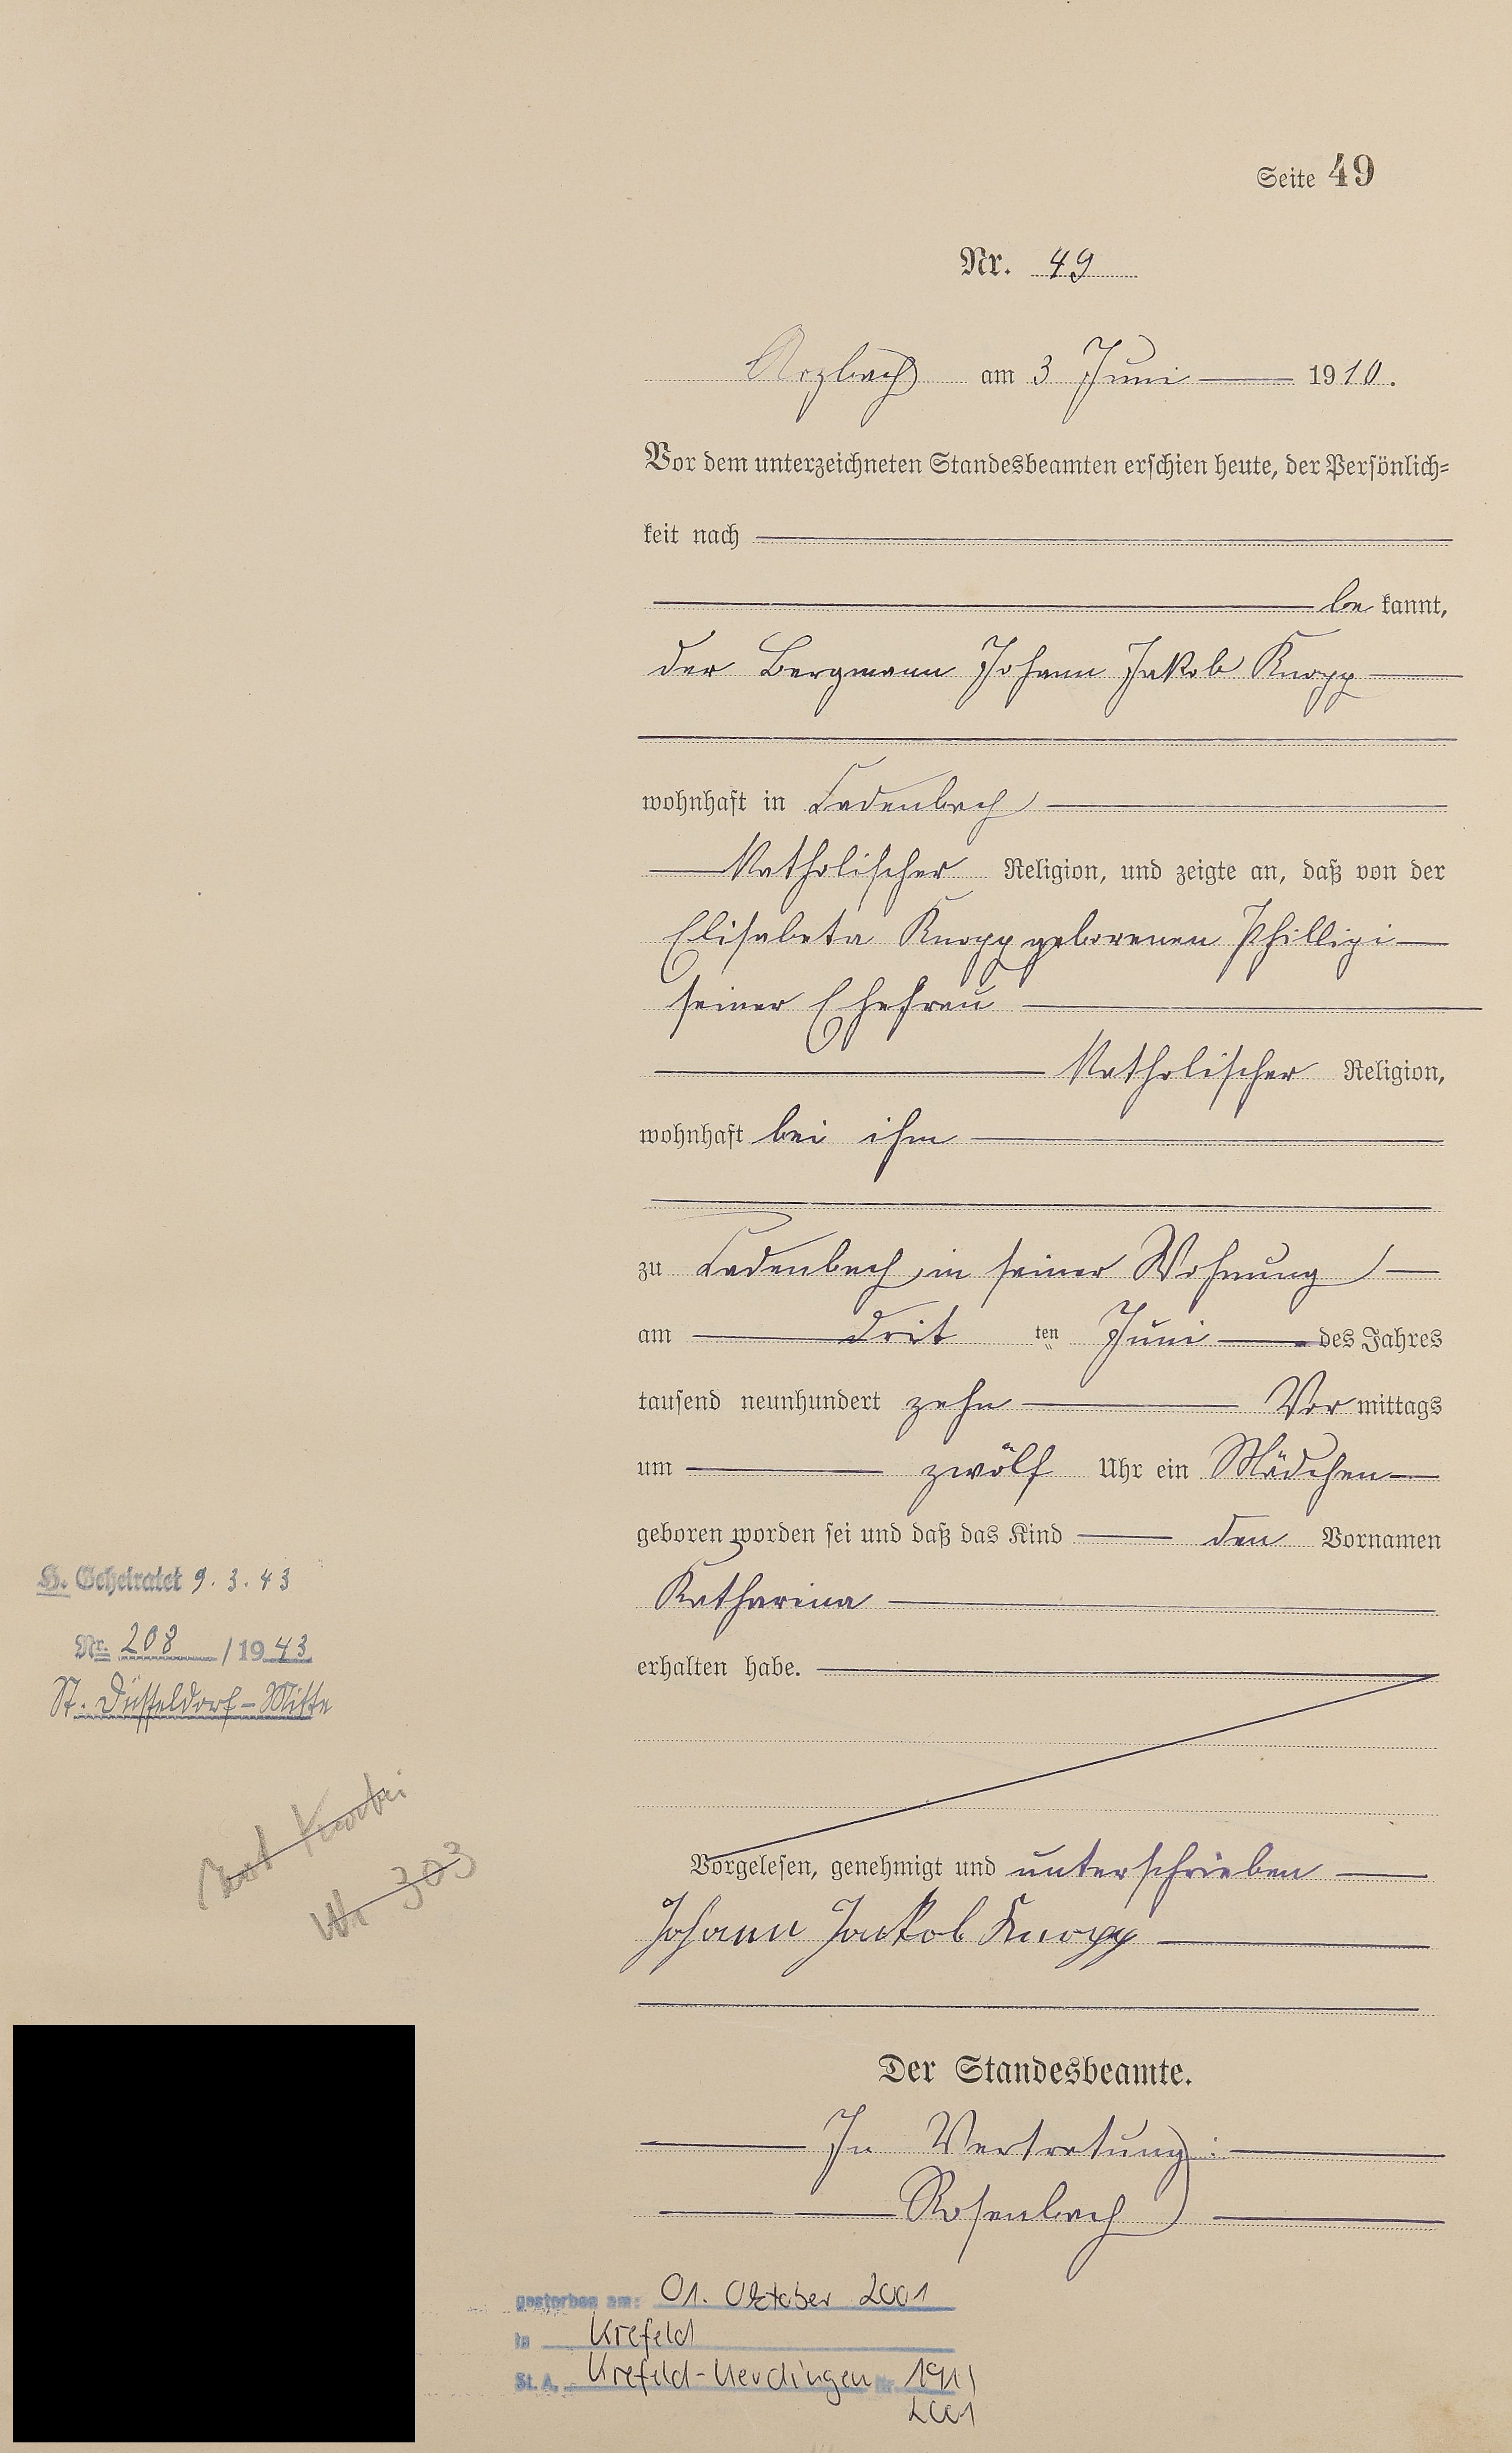 Seite 49
Nr. 49
Arzbach am 3 Juni 1910.
Vor dem unterzeichneten Standesbeamten erschien heute, der Persönlich=
keit nach
be kannt,
der Bergmann Johann Jakob Knopp
wohnhaft in Cadenbach
Katholischer Religion, und zeigte an, daß von der
Elisabeta Knopp geborenen Phillipi
seiner Ehefrau
Katholischer Religion,
wohnhaft bei ihm
zu Cadenbach, in seiner Wohnung
am drit ten Juni des Jahres
tausend neunhundert zehn Vor mittags
um zwölf Uhr ein Mädchen
geboren worden sei und daß das Kind den Vornamen
Katharina
erhalten habe.
Vorgelesen, genehmigt und unterschrieben
Johann Jackob Knopp
Der Standesbeamte.
In Vertretung:
Rosenbach
H. Geheiratet 9.3.43
Nr. 208 / 1943
St. Düsseldorf-Mitte
303
gestorben am: 01. Oktober 2001
in Krefeld
St. A. Krefeld-Uerdingen Nr. 191/
2001